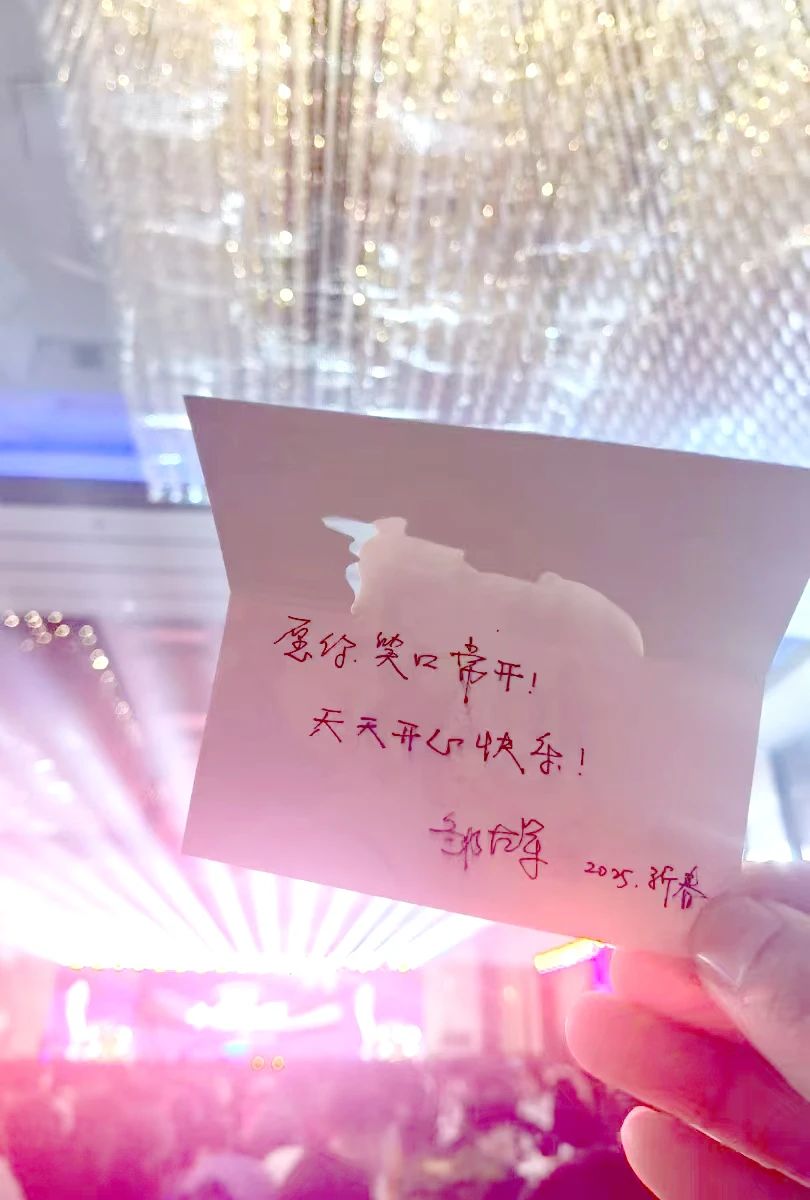 愿你笑口常开!
天天开心快乐!
2025.新春